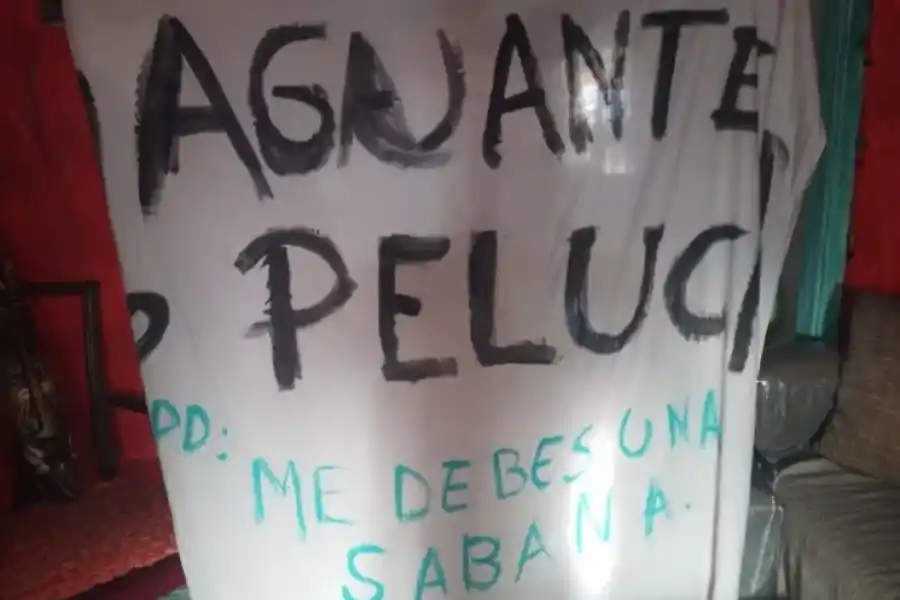 AGUANTE
PELUCA
PD:
ME DEBES UNA
SABANA.